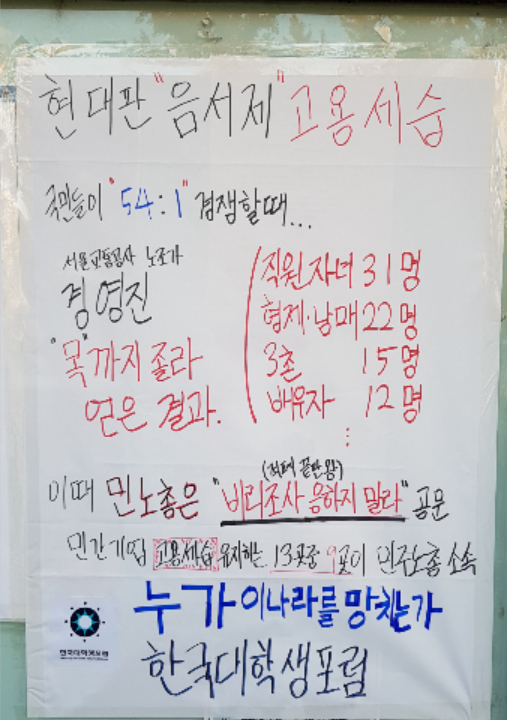 현대판 "음서제" 고용세습
국민들이 "54:1" 경쟁할때...
서울교통공사 노조가
경영진
"목"까지 졸라
얻은 결과.
직원자녀 31명
형제·남매 22명
3촌 15명
배우자 12명
⋮
(적폐 끝판왕)
이때 민노총은 "비리조사 응하지 말라" 공문
민간기업 고용세습 유지하는 13곳중 9곳이 민주노총 소속
누가 이나라를 망치는가
한국대학생포럼
한국대학생포럼